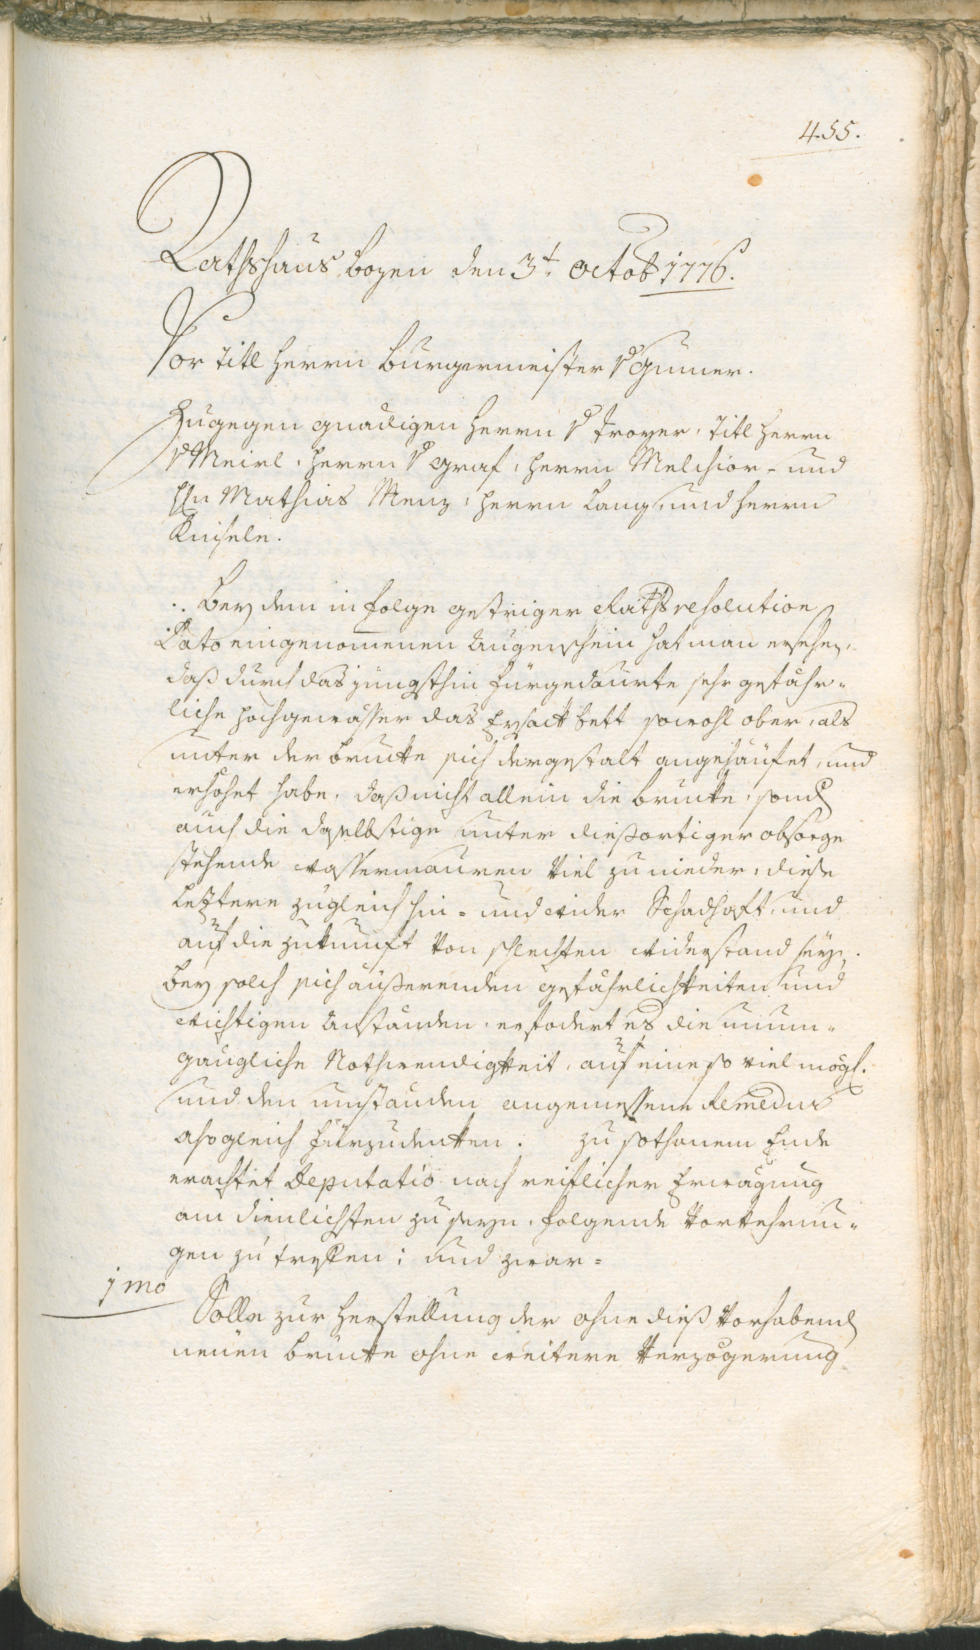 455.
Rathshaus Bozen den 3t. Octob 1776.
Vor Titl Herrn Burgermeister v Gumer.
Zugegen gnädigen Herrn v Troyer, Titl Herrn
v Meirl, Herrn v Graf, Herrn Melchior- und
Hn Mathias Menz, Herrn Lang, und Herrn
Kniseln.
Bey dem in Folge gestriger Rathsresolution
Dato eingenomenen Augenschein hat man ersehen,
daß durch das jüngsthin fürgedaurte sehr gefähr-
liche Hochgewässer das Eysack Bett sowohl ober, als
unter der Brucke sich dergestalt angehäufet, und
erhöhet habe, daß nicht allein die Brucke, sond
auch die daselbstige unter dießortiger Obsorge
stehende Wassermauren viel zu nieder, diese
letztere zugleich hin- und wider Schadhaft, und
auf die Zukunft von schlechten Widerstand seyn.
Bey solch sich äußerenden Gefährlichkeiten und
wichtigen Anständen, erfodert es die unum-
gängliche Nothwendigkeit, auf eine so viel mögl.
und den umständen angemessene Remedur
alsogleich fürzudenken. Zu sothanem Ende
erachtet Deputatio nach reiflicher Erwägung
am dienlichsten zu seyn, folgende Vorkehrun-
gen zu treffen; und zwar-
1mo
Solle zur Herstellung der ohne dieß vorhabend
neuen Brucke ohne weitere Verzögerung